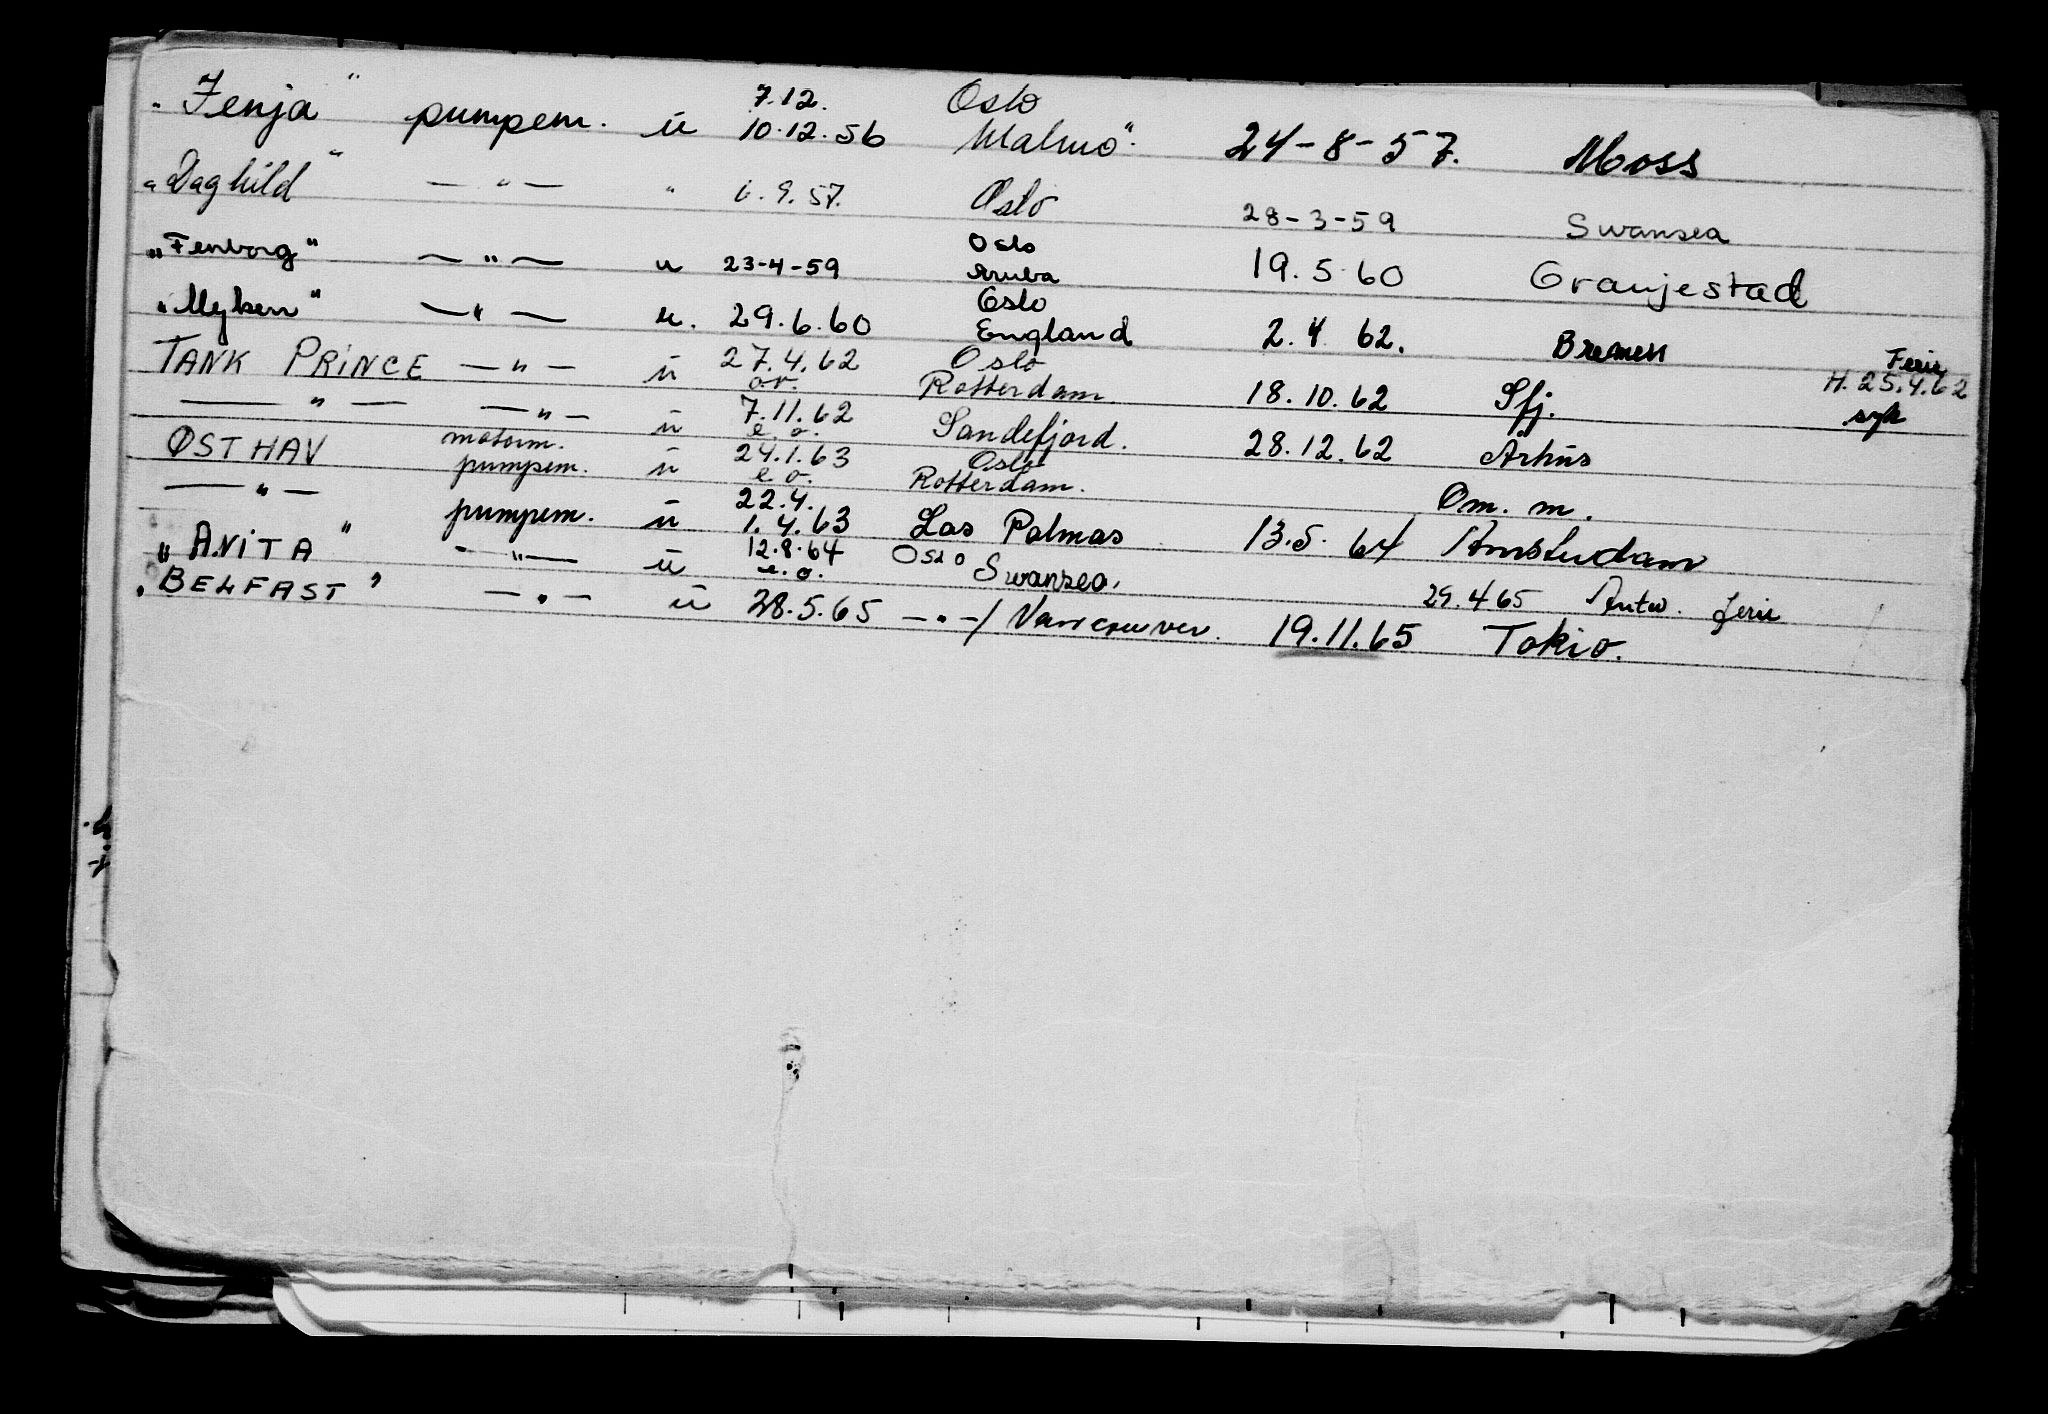 7.12. Oslo
"Fenja" pumpem. u 10.12.56 Malmö". 24-8-57. Moss
"Daghild" — " — " 6.9.57. Oslo 28-3-59 Swansea
Oslo
"Fenborg" — " — u 23-4-59 Aruba 19.5.60 Oranjestad
Oslo
"Myken" — " — u. 29.6.60 England 2.4 62. Bremen
27.4.62 Oslo Ferie
TANK PRINCE — " — u or. Rotterdam 18.10.62 Sfj. H. 25.4.62
7.11.62 syk
— " — — " — u e.o. Sandefjord. 28.12.62 Århus
motorm. 24.1.63 Oslo
ØSTHAV pumpem. u e.o. Rotterdam.
22.4. Om. m.
— " — pumpem. u 1.4.63 Las Palmas 13.5. 64 Amsterdam
12.8.64 Oslo
"ANITA" — " — u e.o. Swansea. 29.4 65 Antw. ferie
"BELFAST" — " — u 28.5.65 — " —/ Vancouver. 19.11.65 Tokio.